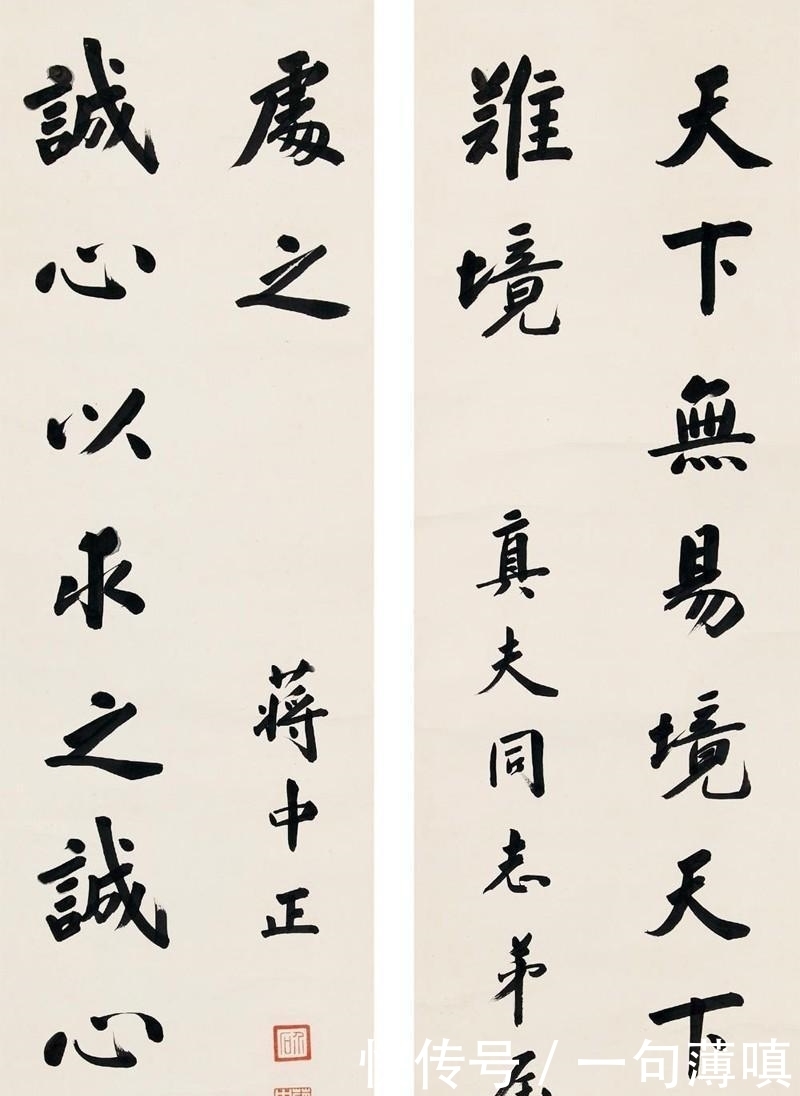 天下無易境天下
難境
真夫同志弟
誠心以求之誠心
處之
蔣中正
传号 / 一句薄嗔